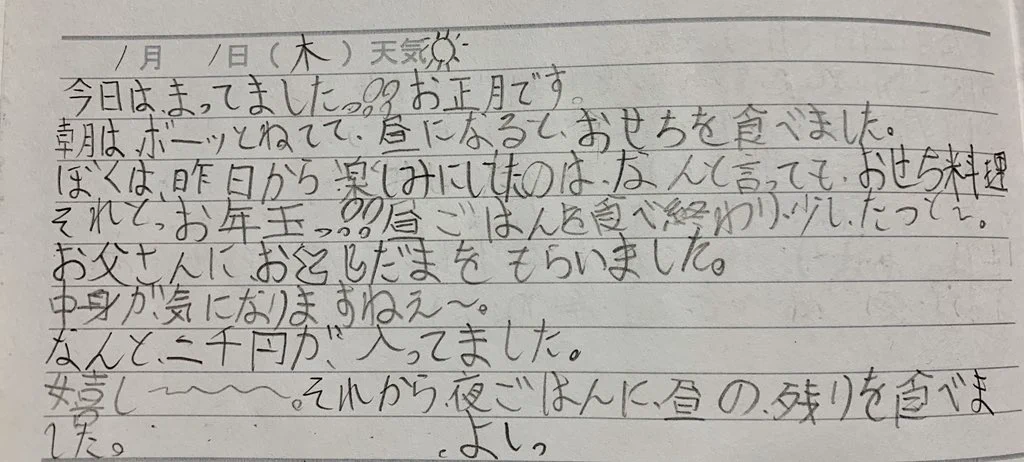 1月 1日(木)天気☀
今日は、まってましたっ!!! お正月です。
朝は、ボーッとねてて、昼になると、おせちを食べました。
ぼくは、昨日から楽しみにしてたのは、なんと言っても、おせち料理
それとっ、お年玉っ!!! 昼ごはんを食べ終わり、少し、たつと〜。
お父さんにお年じだまをもらいました。
中身が、気になりますねぇ〜。
なんと、二千円が、入ってました。
嬉し〜〜〜〜。それから、夜ごはんに、昼の、残りを食べま
した。 よしっ